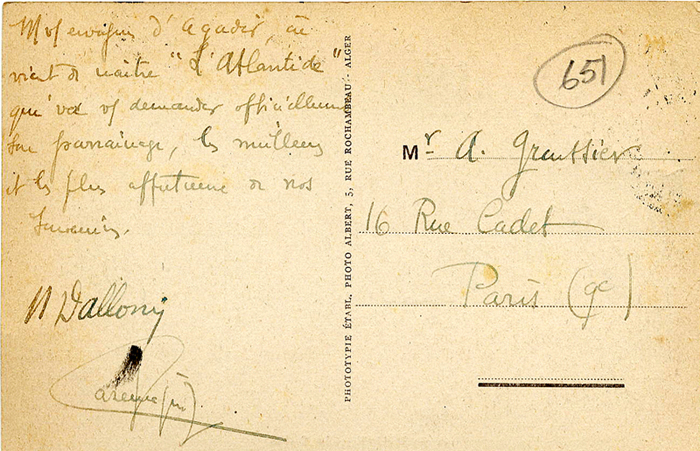 d'Agadir, où
vient de naître "L'Atlantide"
qu'va vs demander officiellement
son parrainage, les meilleurs
et les plus affectueux de nos
souvenirs.
Dalloni
PHOTOTYPIE ÉTABL. PHOTO ALBERT, 5, RUE ROCHAMBEAU - ALGER
651
Mr A.
16 Rue Cadet
Paris (9e)